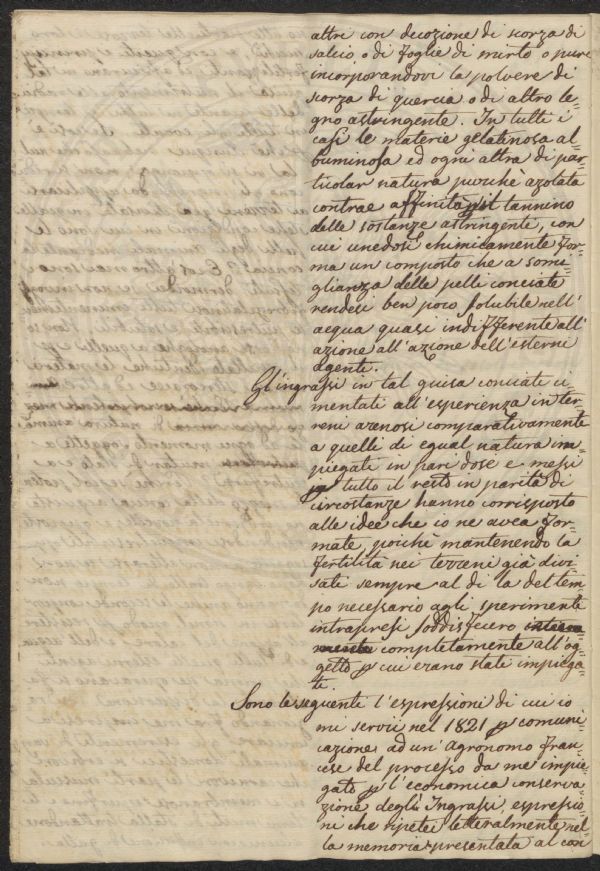 altri con decozione di scorza di
salcio, o di foglie di mirto o pure
incorporandovi la polvere di
scorza di quercia o di altro le=
gno astringente. In tutti i
casi le materie gelatinosa al=
buminosa ed ogni altra di par=
ticolar natura purchè azotata
contrae affinità tannino
delle sostanze astringente, con
cui unedosi chimicamente for=
ma un composto che a somi=
glianza delle pelli conciate
rendesi ben poco solubile nell'
acqua quasi indifferente all'
azione all'azione dell'esterni
agente.
Gl'ingrassi in tal guisa conciati ci
mentati all'esperienza in ter=
reni arenosi comparativamente
a quelli di egual natura im=
piegati in pari dose e messi
p tutto il resto in parità di
circostanze hanno corrisposto
alle idee che io ne avea for=
mate, poichè mantenendo la
fertilità nei terreni già divi=
sati sempre al di la del tem=
po necessario agli sperimente
intrapresi soddisfecero
completamente all'og=
getto p cui erano state impiega=
te.
Sono le seguente l'espressioni di cui io
mi servii nel 1821 p comuni=
cazione ad un'agronomo fran=
cese del processo da me impie=
gato p l'economica conserva=
zione degli Ingrassi, espressio=
ni che ripetei letteralmente nel=
la memoria presentata al con=